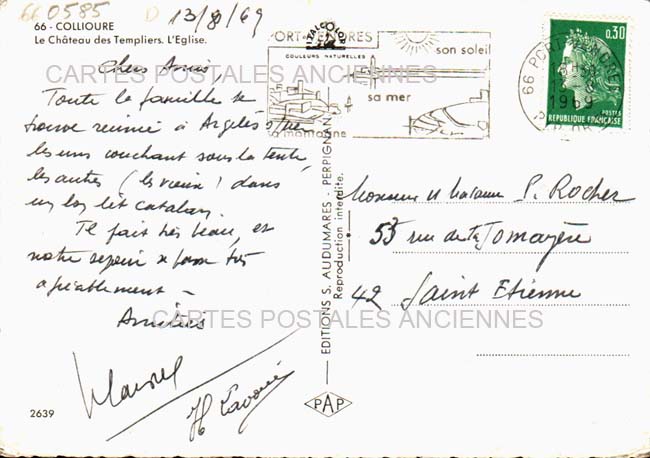 660585 D 13/8/69
66 - COLLIOURE
Le Château des Templiers. L'Eglise.
Chers Amis,
Toute la famille se
trouve réunie à Argelès s/mer
les uns couchant sous la tente,
les autres (les vieux) dans
un lit catalan.
Il fait très beau, et
notre séjour se passe très
agréablement -
Amitiés
2639
EDITIONS S. AUDUMARES - PERPIGNAN
Reproduction interdite.
PAP
ITALCOLOR
COULEURS NATURELLES
PORT-VENDRES
son soleil
sa mer
sa montagne
66 PORT-VENDRES
1969
0,30
POSTES
REPUBLIQUE FRANÇAISE
Monsieur et Madame P. Rocher
53 rue de la Tomayère
42 Saint Etienne
CARTES POSTALES ANCIENNES
CARTES POSTALES ANCIENNES